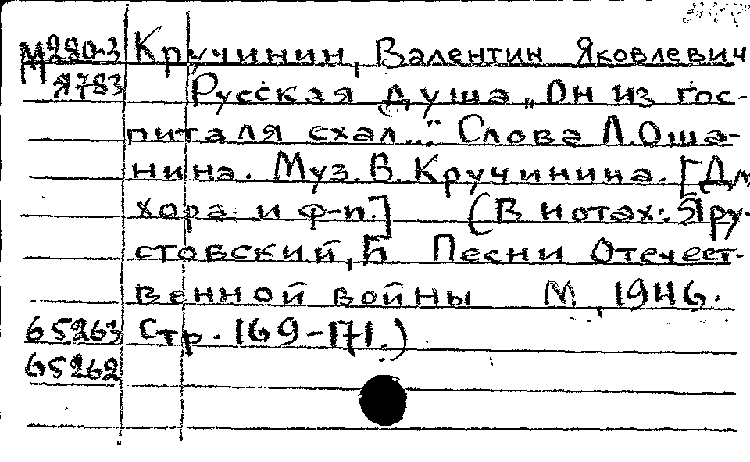 М280-3 Кручинин, Валентин Яковлевич
М 8783 Русская душа „Он из гос-
питаля ехал..." Слова Л. Оша-
нина. Муз. В. Кручинина. [Дл
хора и ф-п.] (В нотах: Яру-
стовский, Б Песни Отечест-
венной войны М, 1946.
65263 Стр. 169-171.)
65262